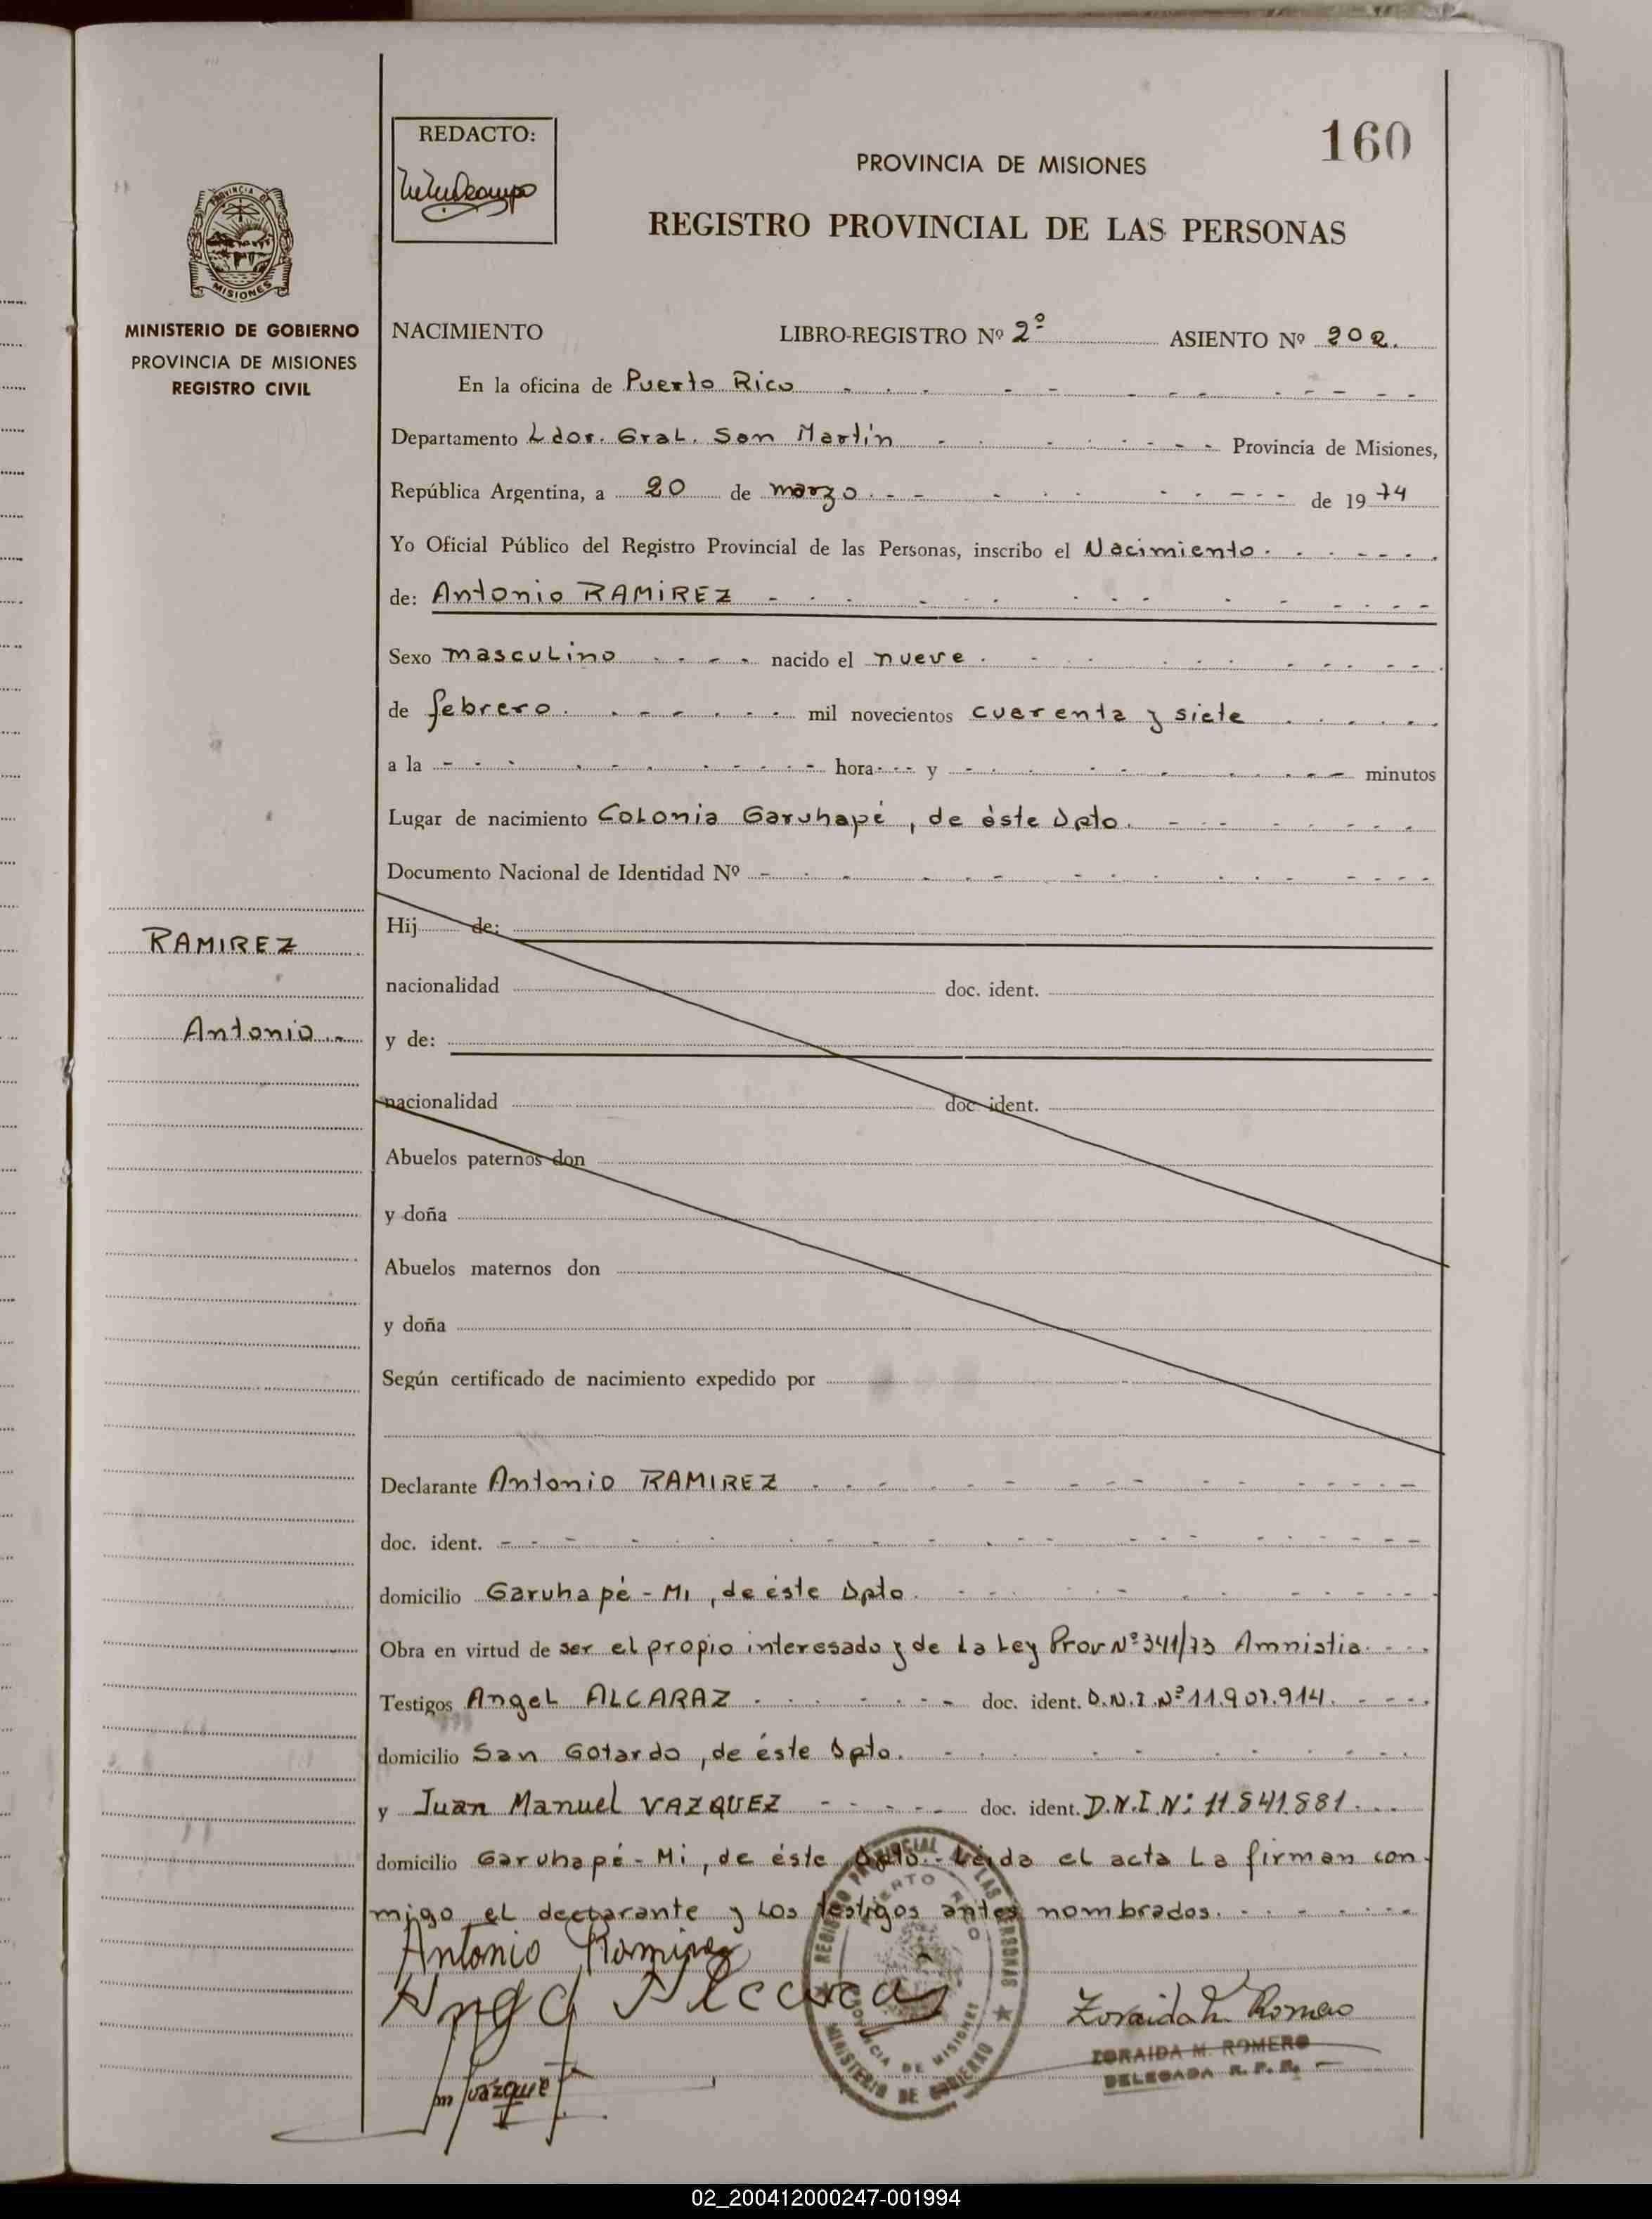 160
REDACTO:
PROVINCIA DE MISIONES
REGISTRO PROVINCIAL DE LAS PERSONAS
PROVINCIA DE
MISIONES
MINISTERIO DE GOBIERNO
PROVINCIA DE MISIONES
REGISTRO CIVIL
NACIMIENTO LIBRO-REGISTRO Nº 2º ASIENTO Nº 202.
En la oficina de Puerto Rico
Departamento Ldor. Gral. San Martín Provincia de Misiones,
República Argentina, a 20 de marzo de 1974
Yo Oficial Público del Registro Provincial de las Personas, inscribo el Nacimiento
de: Antonio RAMIREZ
Sexo masculino nacido el nueve
de febrero mil novecientos cuarenta y siete
a la hora y minutos
Lugar de nacimiento Colonia Garuhapé, de éste Dpto.
Documento Nacional de Identidad Nº
RAMIREZ
Antonio
Hij de:
nacionalidad doc. ident.
y de:
nacionalidad doc. ident.
Abuelos paternos don
y doña
Abuelos maternos don
y doña
Según certificado de nacimiento expedido por
Declarante Antonio RAMIREZ
doc. ident.
domicilio Garuhapé - Mi, de éste Dpto.
Obra en virtud de ser el propio interesado y de la Ley Prov Nº 341/73 Amnistia.
Testigos Angel ALCARAZ doc. ident. D.N.I. Nº 11.907.914.
domicilio San Gotardo, de éste Dpto.
y Juan Manuel VAZQUEZ doc. ident. D.N.I. Nº: 11.841.881.
domicilio Garuhapé - Mi, de éste Dpto.- Leida el acta la firman con-
migo el declarante y los testigos antes nombrados.
Antonio Ramirez
Angel Alcaraz
Zoraida M. Romero
ZORAIDA M. ROMERO
DELEGADA R. P. P.
REGISTRO PROVINCIAL DE LAS PERSONAS
PUERTO RICO
PROVINCIA DE MISIONES
MINISTERIO DE GOBIERNO
02_200412000247-001994